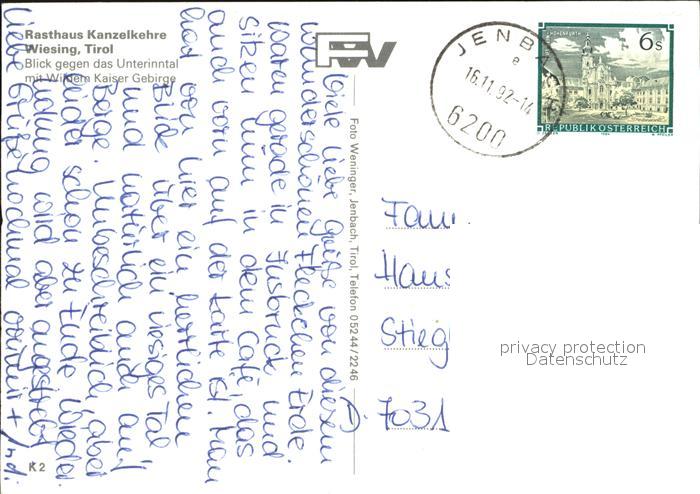 Rasthaus Kanzelkehre
Wiesing, Tirol
Blick gegen das Unterinntal
mit Wildem Kaiser Gebirge
JENBACH
e
16.11.92-14
6200
6 S
REPUBLIK ÖSTERREICH
Foto Weninger, Jenbach, Tirol, Telefon 05244/2246
Viele liebe Grüße von diesem
wunderschönen Fleckchen Erde.
Waren gerade in Insbruck und
sitzen nun in dem Café, das
auch vorn auf der Karte ist. Man
hat von hier ein herrlichen
Blick über ein riesiges Tal
und natürlich auch auf
Berge. Unbeschreiblich, aber
leider schon zu Ende. Wieder-
holung wird aber angestrebt.
Liebe Grüße nochmal
Fam
Haus
Stieg
7031
privacy protection
Datenschutz
K 2